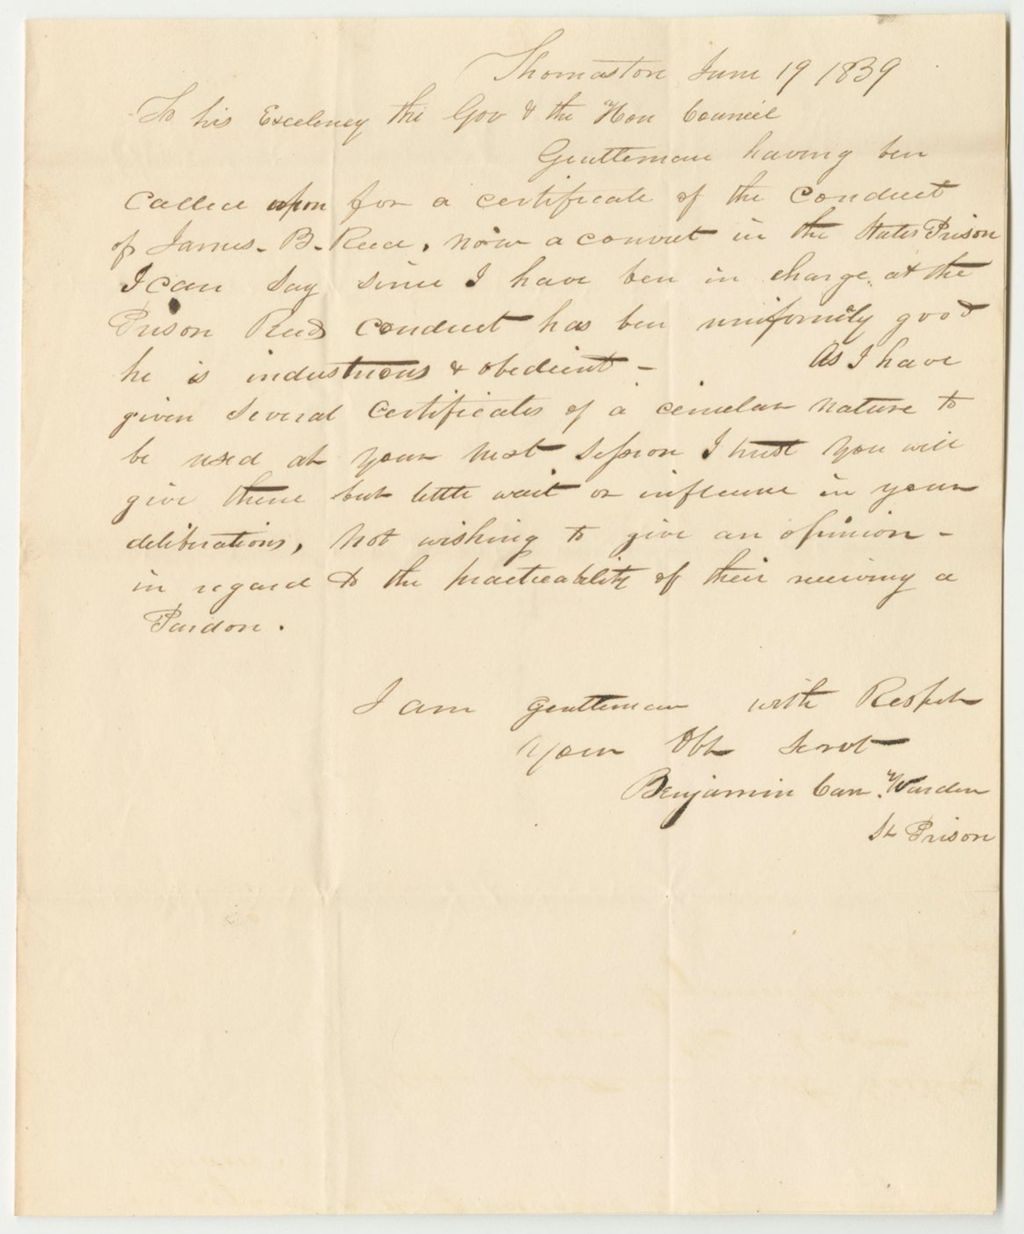 Thomaston June 19 1839
To his Excelency the Gov & the Hon Council
Gentleman having ben
Called upon for a certificate of the Conduct
of James. B. Reed, now a convict in the States Prison
I can say since I have ben in charge at the
Prison Reeds conduct has ben uniformily good
he is industrious & obedient - As I have
given several Certificates of a cimelar nature to
be used at your next Session I trust you will
give them but little wait or influence in your
deliberations, Not wishing to give an opinion -
in regard to the practicability of their receiving a
Pardon.
I am gentleman with Respet
Your Obt Servt
Benjamin Carr Warden
St Prison